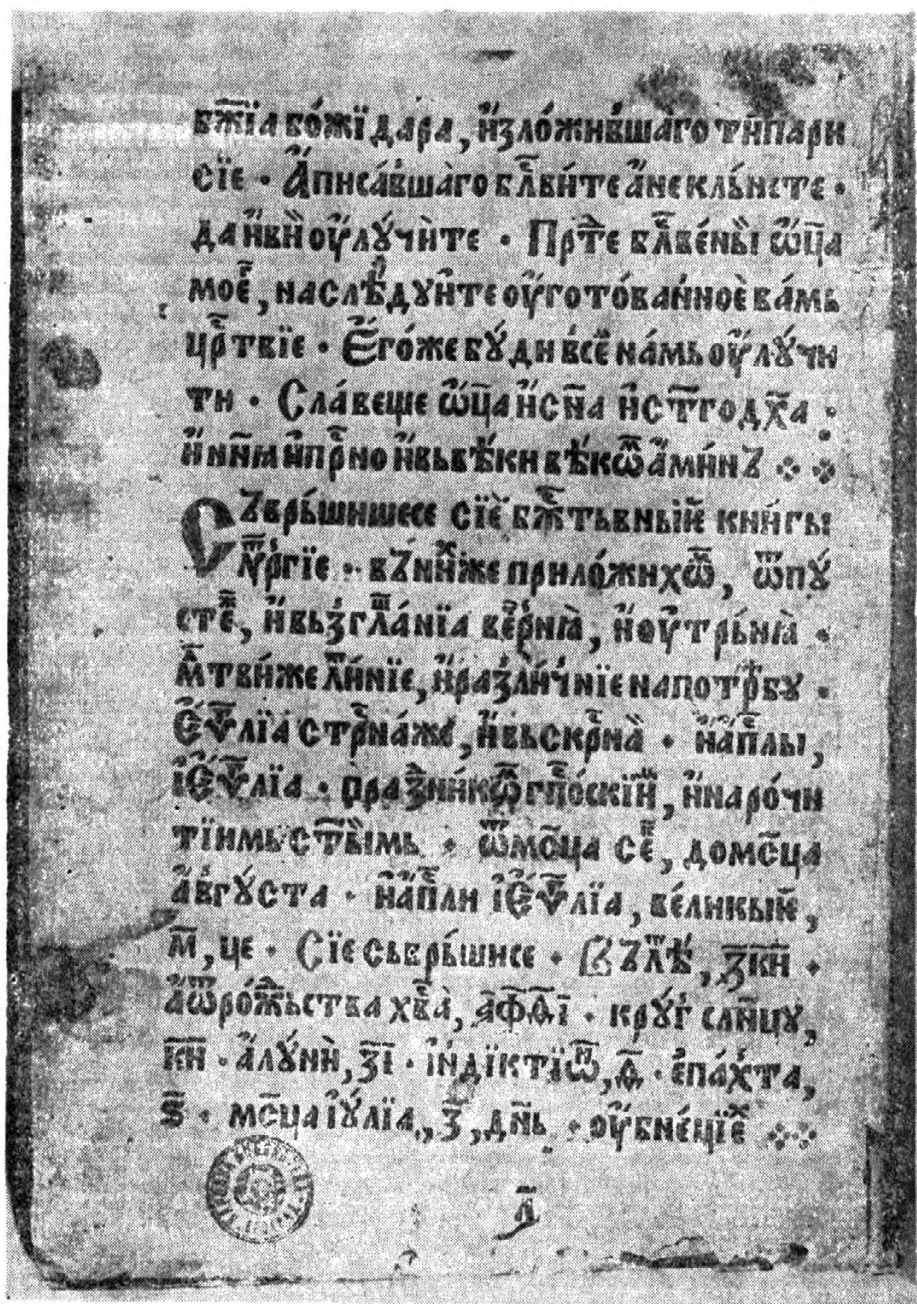 бж҃їа бо́жї дара , и҆зло́жившаго ти́пари
сїе · А҆ писа́вшаго бл҃ви́те а҆ не кльнѣте ·
да и҆ вы̀ оу҆лꙋчи̑те · Прⷣїте бл҃ве́ны̏ ѡ҆ц҃а
моеⷢ , наслѣⷣдꙋи́те оу҆гото́ваѝноѐ ва́мь
црⷭ҇твїе · Е҆го́же бꙋ́ди всѣⷨ на́мь оу҆лꙋчи
ти · Славеще ѡ҆ц҃а и҆ сн҃а и҆ ст҃го дх҃а ·
и҆ нн҃ꙗ и҆ прⷭ҇но и҆ вь вѣ́ки вѣ́кѡⷡ а҆ми́нꙁ
Сꙁврьшишесе сїе бжⷭ҇тьвныи҆ кни́гы
лѵⷮргїе · вꙁ ниⷯже приложихѡⷨ , ѡⷮпꙋ
стеⷤ , и҆ вьꙁглⷲа́нїа веⷱ҇рнꙗ̀ , и҆ оу҆трьнꙗ̀ ·
мл҃тви́ же лиⷮ́нїе , и҆ раꙁли́чнїе на потрⷠ҇бꙋ ·
Е҆ѵⷢ҇лїа стрⷭ҇на́же , и҆ вьскрⷭ҇на̀ · и҆ а҆пⷭ҇лы ,
і҆ Е҆ѵⷢ҇лїа · праꙁни́кѡⷨ гпⷭ҇о́скїиⷨ , и҆ наро́чи
тїимь ст҃ы̏имь · ѿ мцⷭ҇а сеⷫ , до мцⷭ҇а
а҆вгꙋ́ста · и҆ а҆пⷭ҇ли і҆ Е҆ѵⷢ҇лїа , вели́кыиⷯ ,
м҃ , це · Сїе сьврьшисе · Вꙁ лѣⷮ , ꙁ҃к҃и ·
а҆ ѿ рожⷣ҇ьства хв҃а̀ , а҃ф҃ѳ҃і · крꙋ́г слн҃цꙋ ,
к҃и · а҆ лꙋнѝ , ꙁ҃і · і҆нді́ктїѡⷩ , ѳ҃ · е҆па́хта ,
ѕ҃ · мцⷭ҇а і҆ꙋлїа , ꙁ҃ , дн҃ь · оу҆ бне́цїеⷯ
л҃